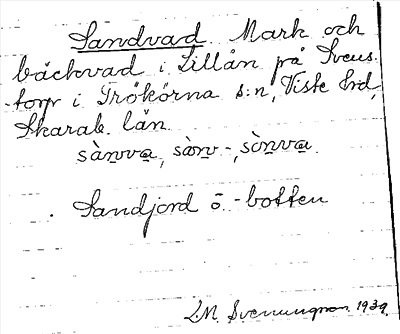 Sandvad. Mark och
bäckvad i Lillån på Svens-
torp i Trökörna s:n, Viste hd,
Skarab. län.
sànva, sànv-, sònva.
Sandjord o. -botten
L.M. Svenungson 1939.